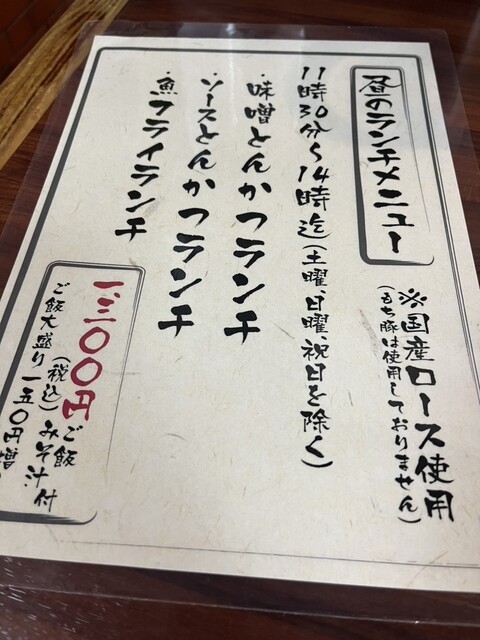 昼のランチメニュー
※国産ロース使用
(もち豚は使用しておりません)
11時30分~14時迄(土曜、日曜、祝日を除く)
・味噌とんかつランチ
・ソースとんかつランチ
・魚フライランチ
一、三〇〇円
(税込)
ご飯
みそ汁付
ご飯大盛り一五〇円増